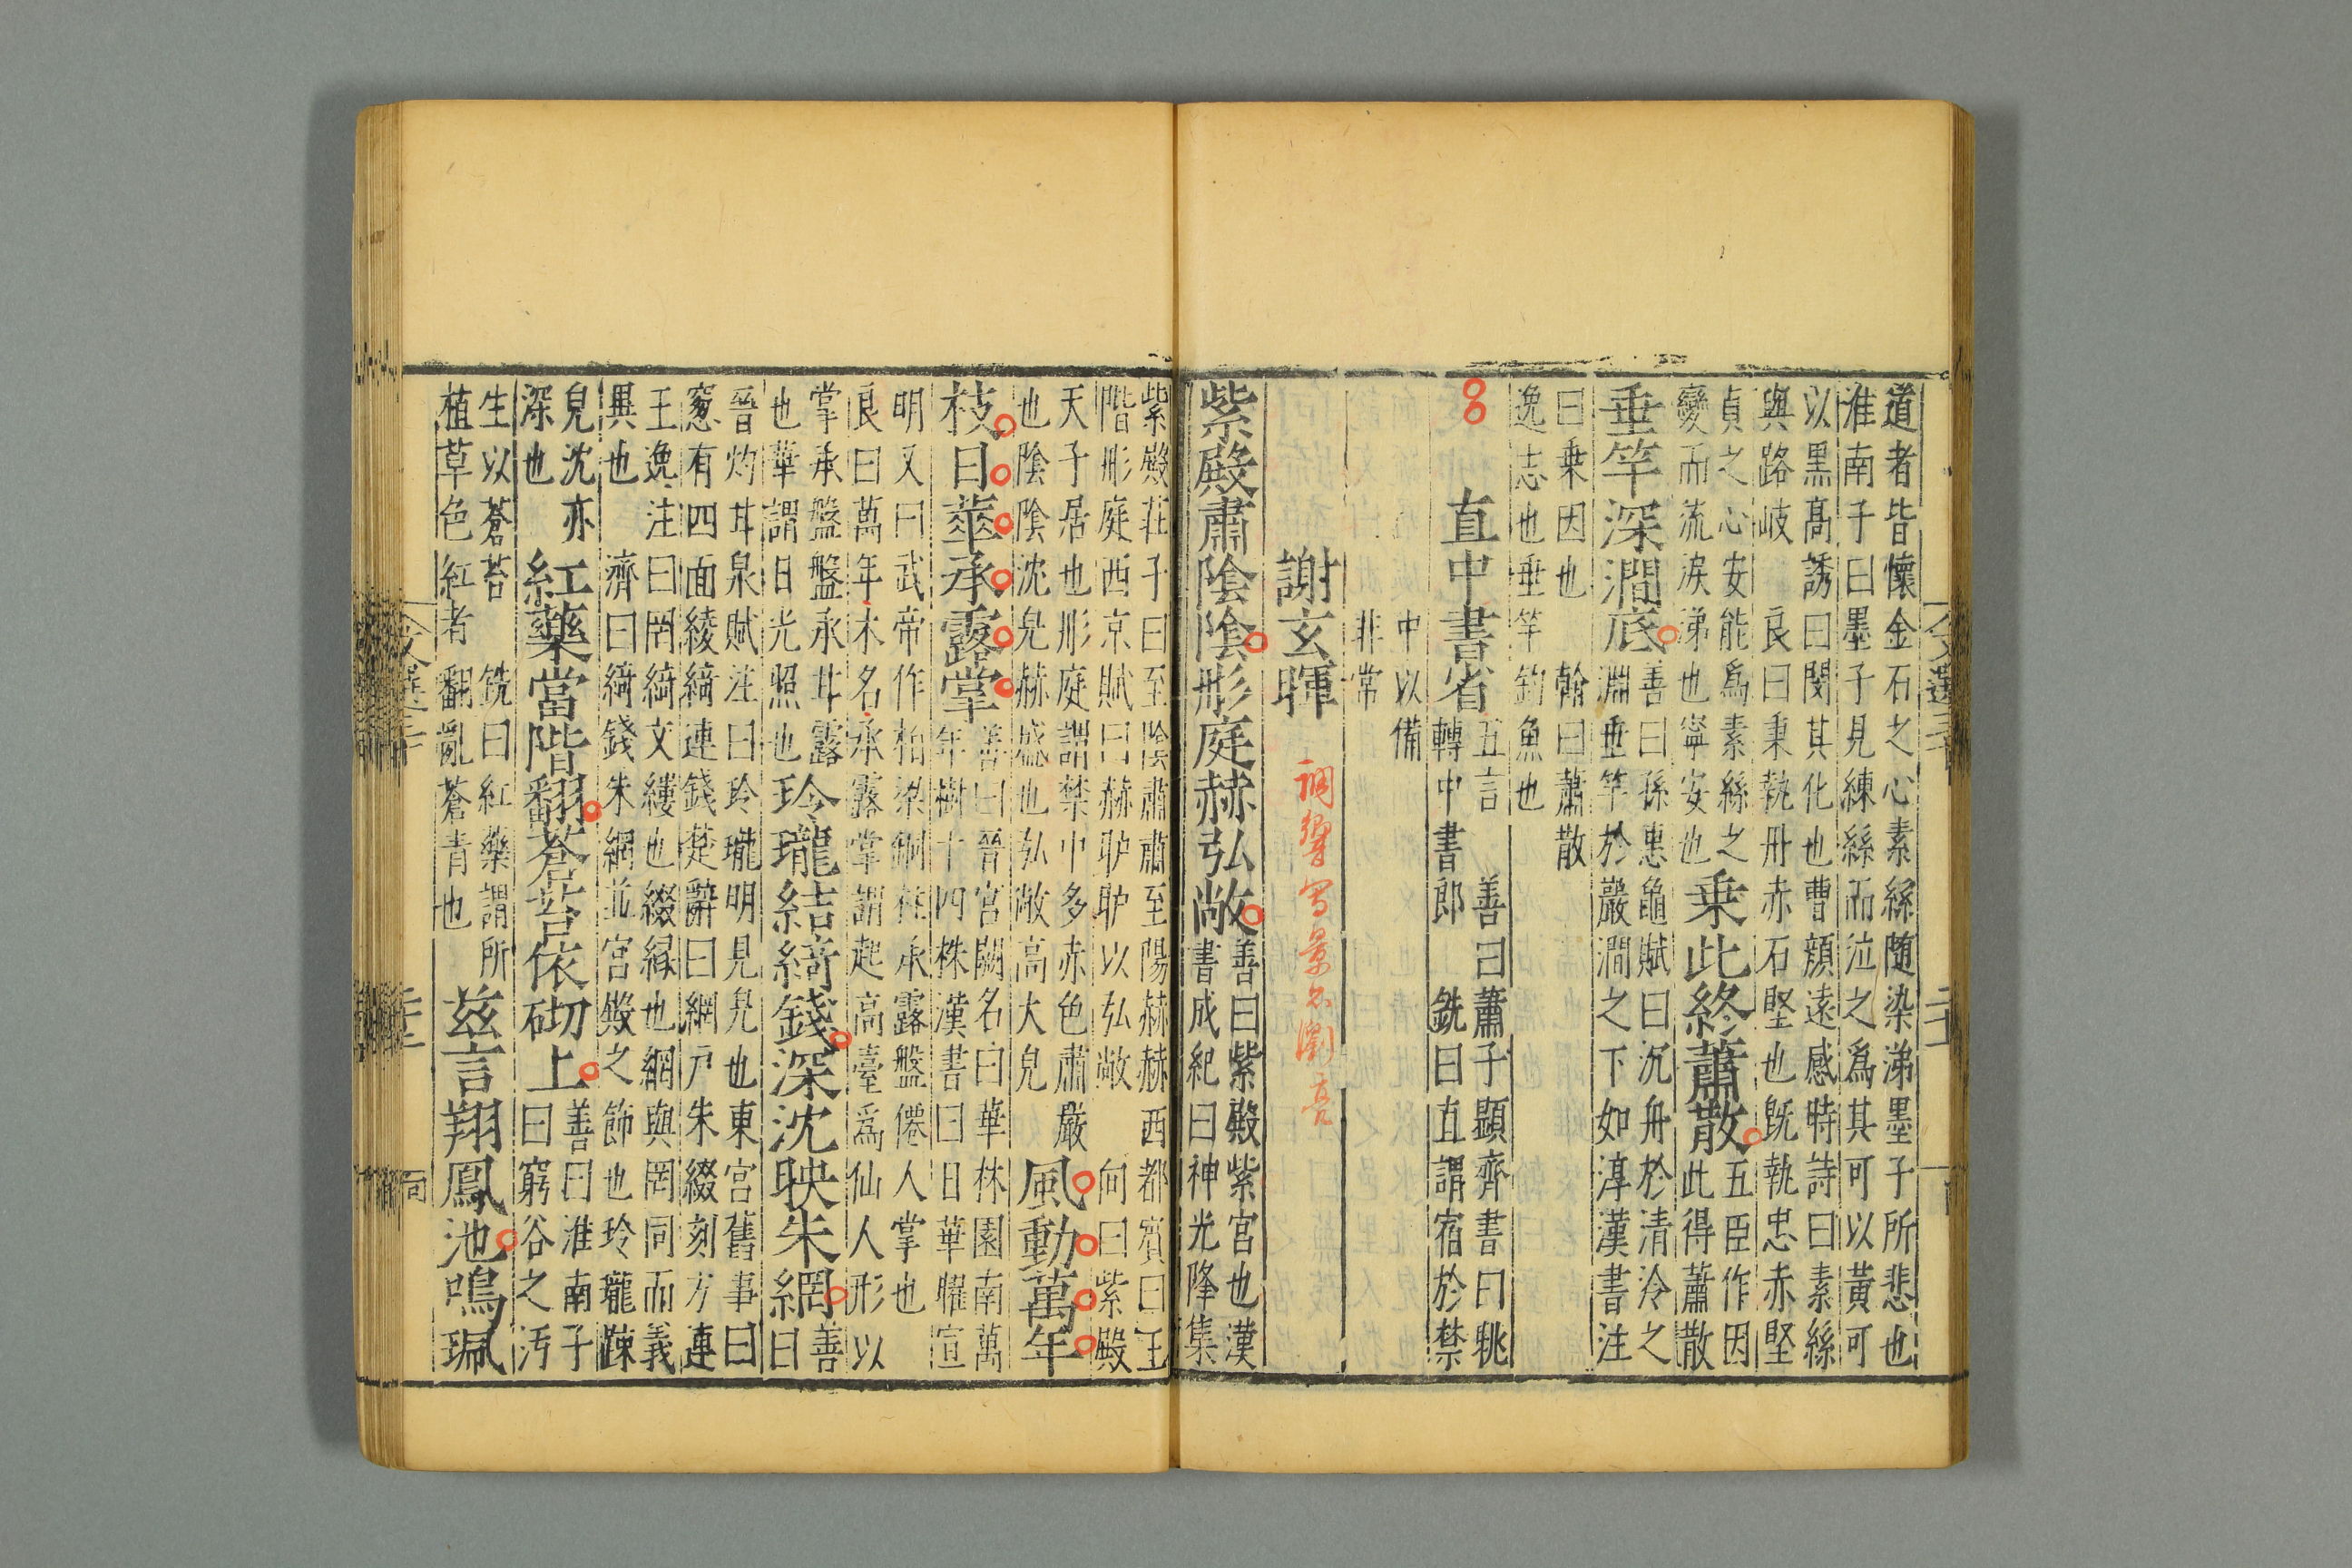 道者皆懷金石之心素絲隨染涕墨子所悲也
淮南子曰墨子見練絲而泣之爲其可以黃可
以黑高誘曰閔其化也曹顏遠感時詩曰素絲
與路岐 良曰秉執丹赤石堅也既執忠赤堅
貞之心安能爲素絲之
變而流淚涕也寧安也
乗此終蕭散
五臣作因
此得蕭散
垂竿深澗底
善曰孫惠龜賦曰沉舟於清泠之
淵垂竿於巖澗之下如淳漢書注
曰乗因也 翰曰蕭散
逸志也垂竿釣魚也
直中書省
五言 善曰蕭子顯齊書曰眺
轉中書郎 銑曰直謂宿於禁
中以備
非常
謝玄暉
調響寫景
紫殿肅陰陰彤庭赫弘敞
善曰紫殿紫宮也漢
書成紀曰神光降集
紫殿莊子曰至陰肅肅至陽赫赫西都賓曰玉
階彤庭西京賦曰赫㫰㫰以弘敞 向曰紫殿
天子居也彤庭謂禁中多赤色肅嚴
也陰陰沈皃赫盛也弘敞高大皃
風動萬年
枝日華承露掌
善曰晉宮闕名曰華林園南萬
年樹十四株漢書曰日華曜宣
明又曰武帝作柏梁銅柱承露盤僊人掌也
良曰萬年木名承露掌謂起高臺爲仙人形以
掌承盤盤承甘露
也華謂日光照也
玲瓏結綺錢深沈映朱網
善
曰
晉灼甘泉賦注曰玲瓏明見皃也東宮舊事曰
窻有四面綾綺連錢楚辭曰網戸朱綴刻方連
王逸注曰罔綺文縷也綴緣也網與罔同而義
異也 濟曰綺錢朱網並宮殿之飾也玲瓏踈
皃沈亦
深也
紅藥當階翻蒼苔依砌上
善曰淮南子
曰窮谷之汚
生以蒼苔 銑曰紅藥謂所
植草色紅者翻亂蒼青也
茲言翔鳳池鳴珮